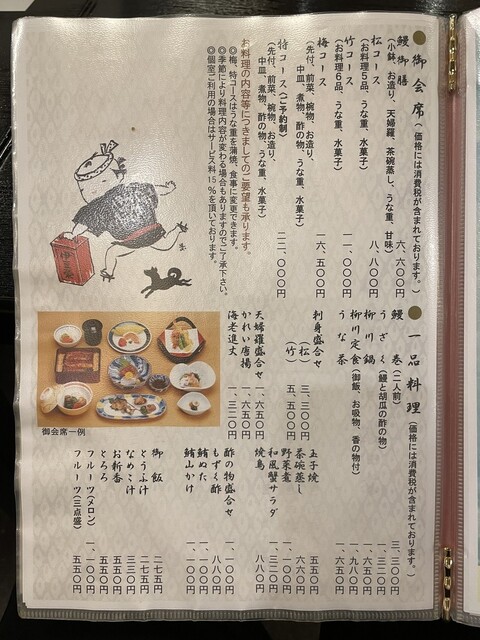 ●御会席(価格には消費税が含まれております。)
鰻御膳 六、六〇〇円
(小鉢、お造り、天婦羅、茶碗蒸し、うな重、甘味)
松コース 八、八〇〇円
(お料理5品、うな重、水菓子)
竹コース 一一、〇〇〇円
(お料理6品、うな重、水菓子)
梅コース 一六、五〇〇円
(先付、前菜、椀物、お造り、
中皿、煮物、酢の物、うな重、水菓子)
特コース(ご予約制) 二二、〇〇〇円
(先付、前菜、椀物、お造り、
中皿、煮物、酢の物、うな重、水菓子)
お料理の内容等につきましてのご要望も承ります。
◎梅、特コースはうな重を蒲焼、食事に変更できます。
◎季節により料理内容が変わる場合もありますのでご了承下さい。
◎個室ご利用の場合はサービス料15%を頂いております。
●一品料理(価格には消費税が含まれております。)
鰻巻(二人前) 三、三〇〇円
うざく(鰻と胡瓜の酢の物) 一、三二〇円
柳川鍋 一、六五〇円
柳川定食(御飯、お吸物、香の物付) 一、九八〇円
うな茶 一、六五〇円
刺身盛合せ
(松) 三、三〇〇円
(竹) 五、五〇〇円
天婦羅盛合せ 一、六五〇円
かれい唐揚 一、六五〇円
海老進丈 一、三二〇円
玉子焼 五五〇円
茶碗蒸し 六六〇円
野菜煮 一、一〇〇円
和風蟹サラダ 一、三二〇円
焼鳥 八八〇円
酢の物盛合せ 一、一〇〇円
もずく酢 八八〇円
鮪ぬた 一、一〇〇円
鮪山かけ 一、一〇〇円
御飯 二七五円
とうふ汁 二七五円
なめこ汁 三三〇円
お新香 五五〇円
とろろ 五五〇円
フルーツ(メロン) 一、一〇〇円
フルーツ(三点盛) 五五〇円
御会席一例